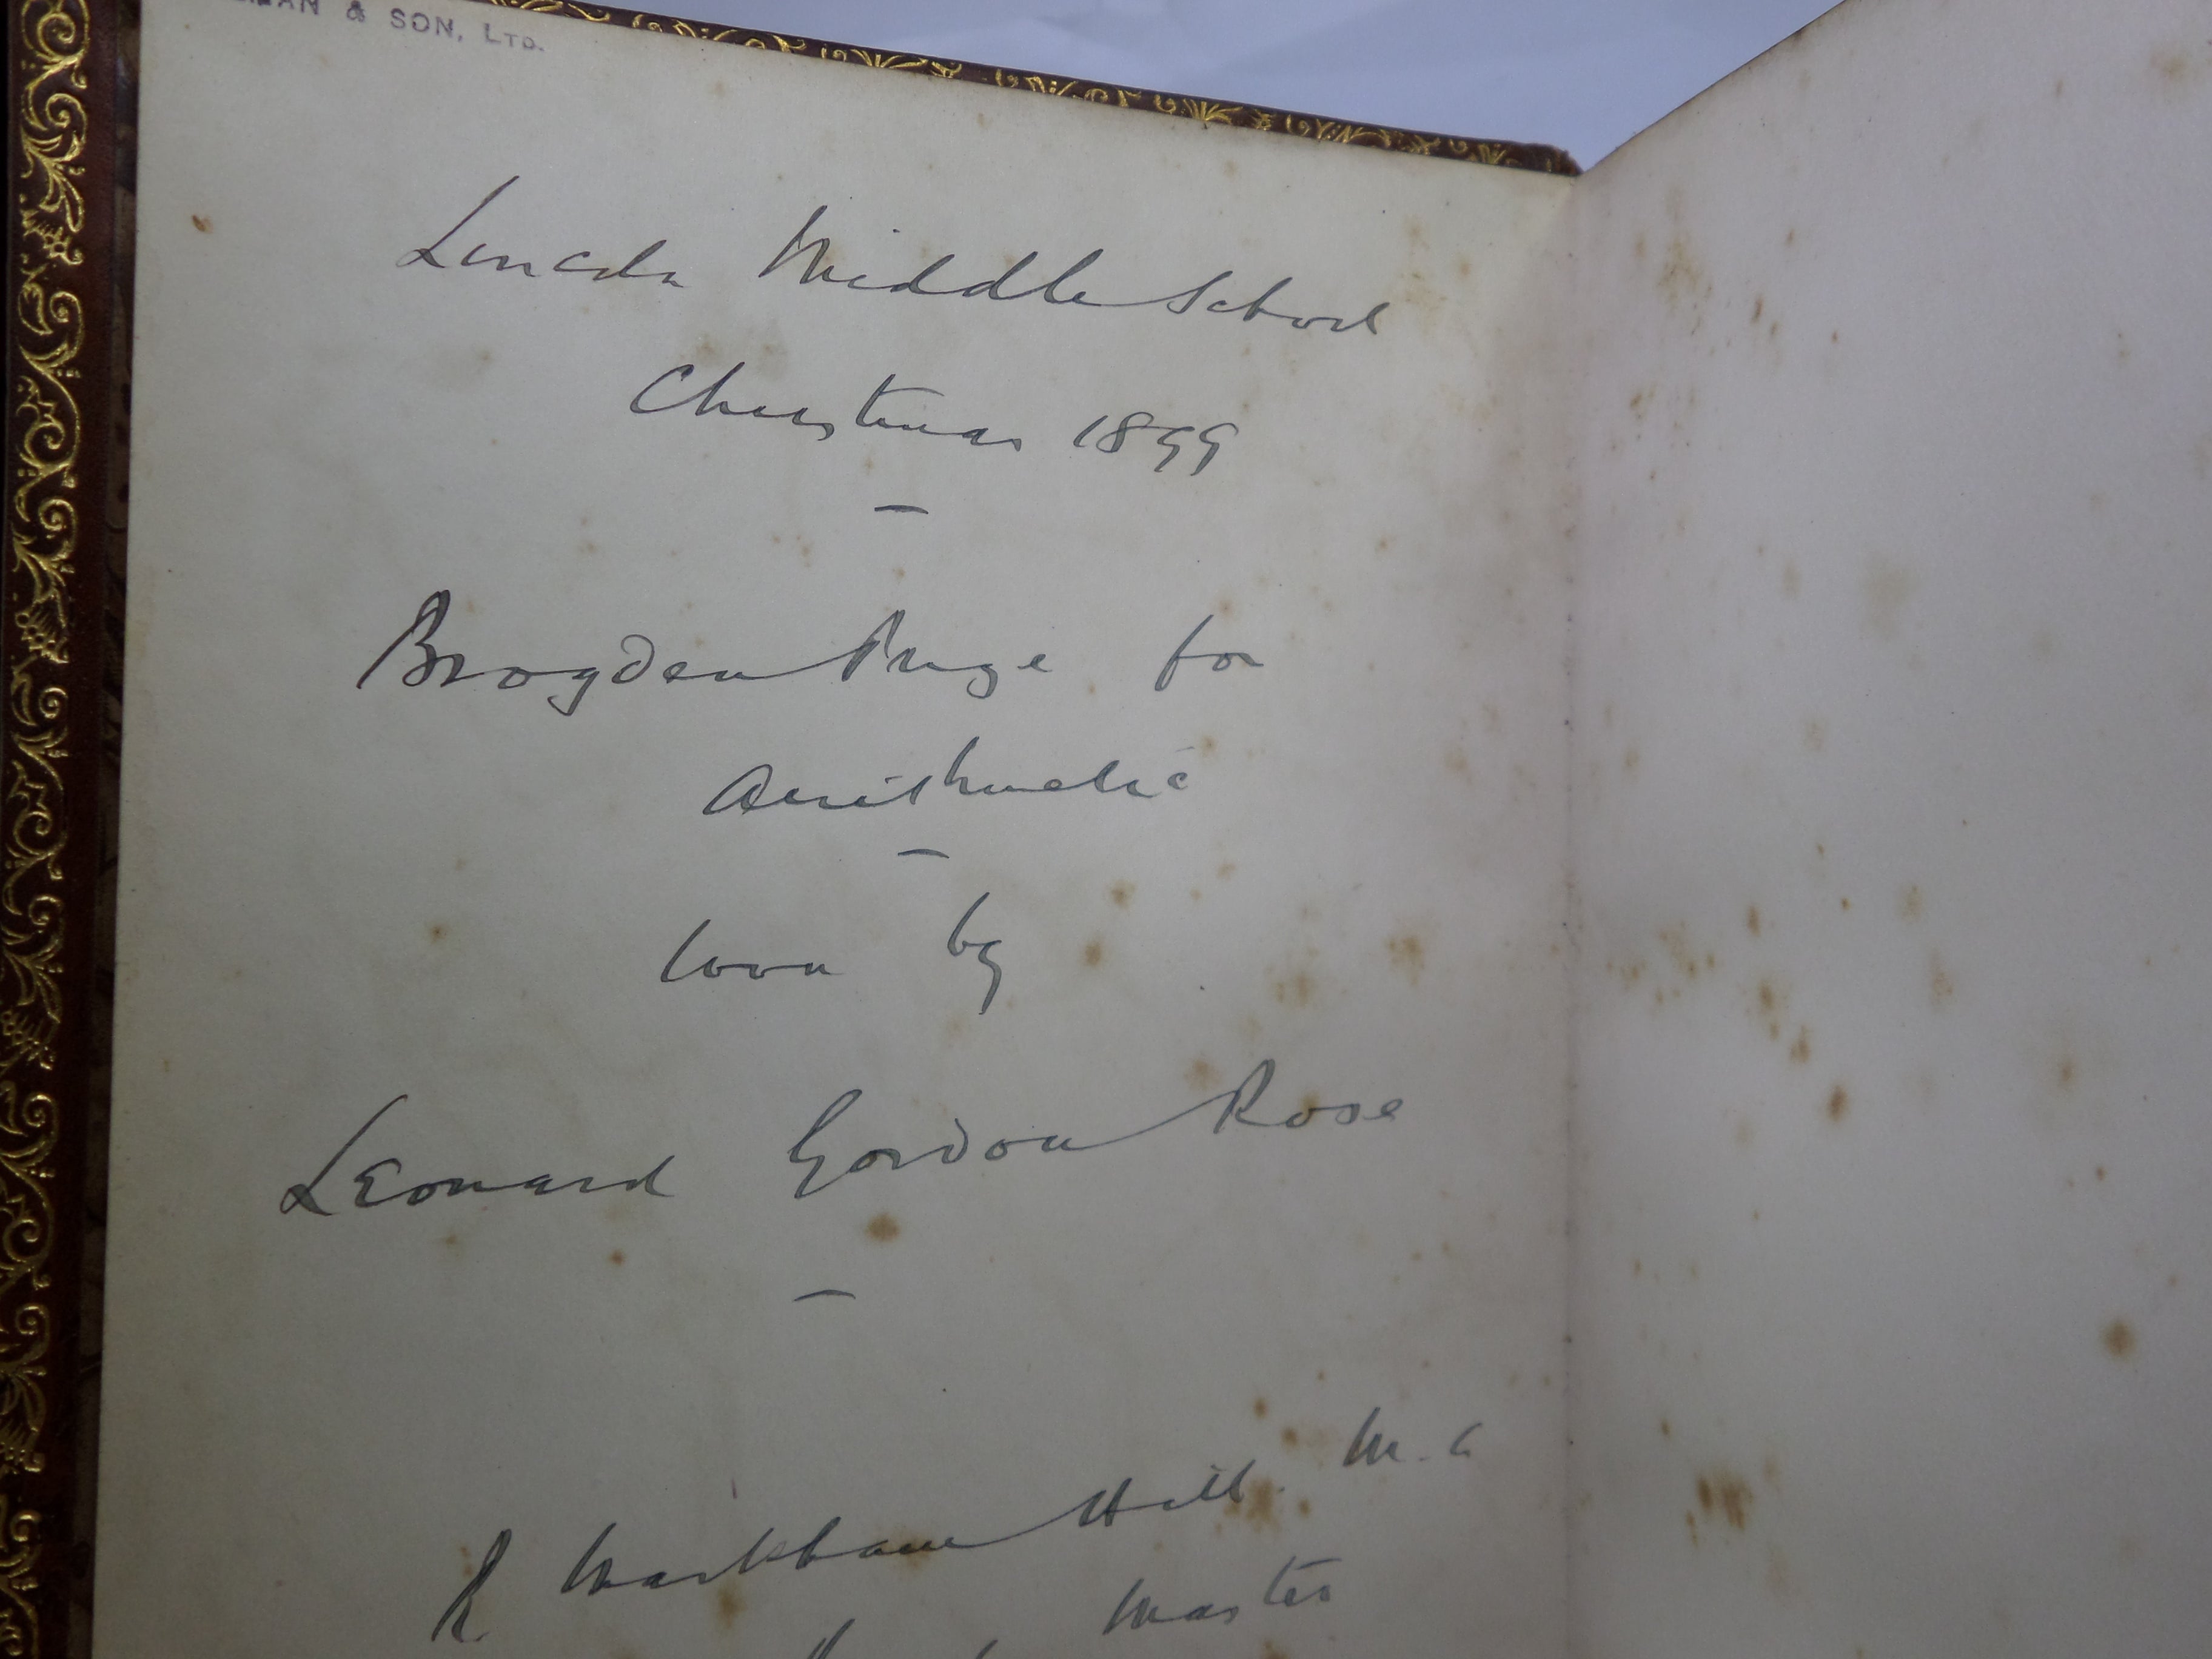 & SON, LTD.
Lincoln Middle School
Christmas 1899
Brogden Prize for
Arithmetic
won by
Leonard Gordon Rose
R Markham Hill. M.A
Master